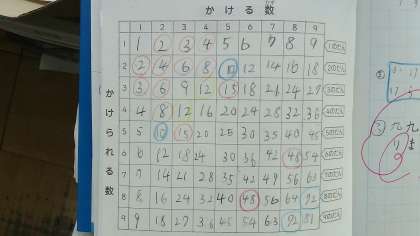 かける数
1 2 3 4 5 6 7 8 9
かけられる数
1 1 2 3 4 5 6 7 8 9 1のだん
2 2 4 6 8 10 12 14 16 18 2のだん
3 3 6 9 12 15 18 21 24 27 3のだん
4 4 8 12 16 20 24 28 32 36 4のだん
5 5 10 15 20 25 30 35 40 45 5のだん
6 6 12 18 24 30 36 42 48 54 6のだん
7 7 14 21 28 35 42 49 56 63 7のだん
8 8 16 24 32 40 48 56 64 92 8のだん
9 9 18 27 36 45 54 63 92 81 9のだん
九九